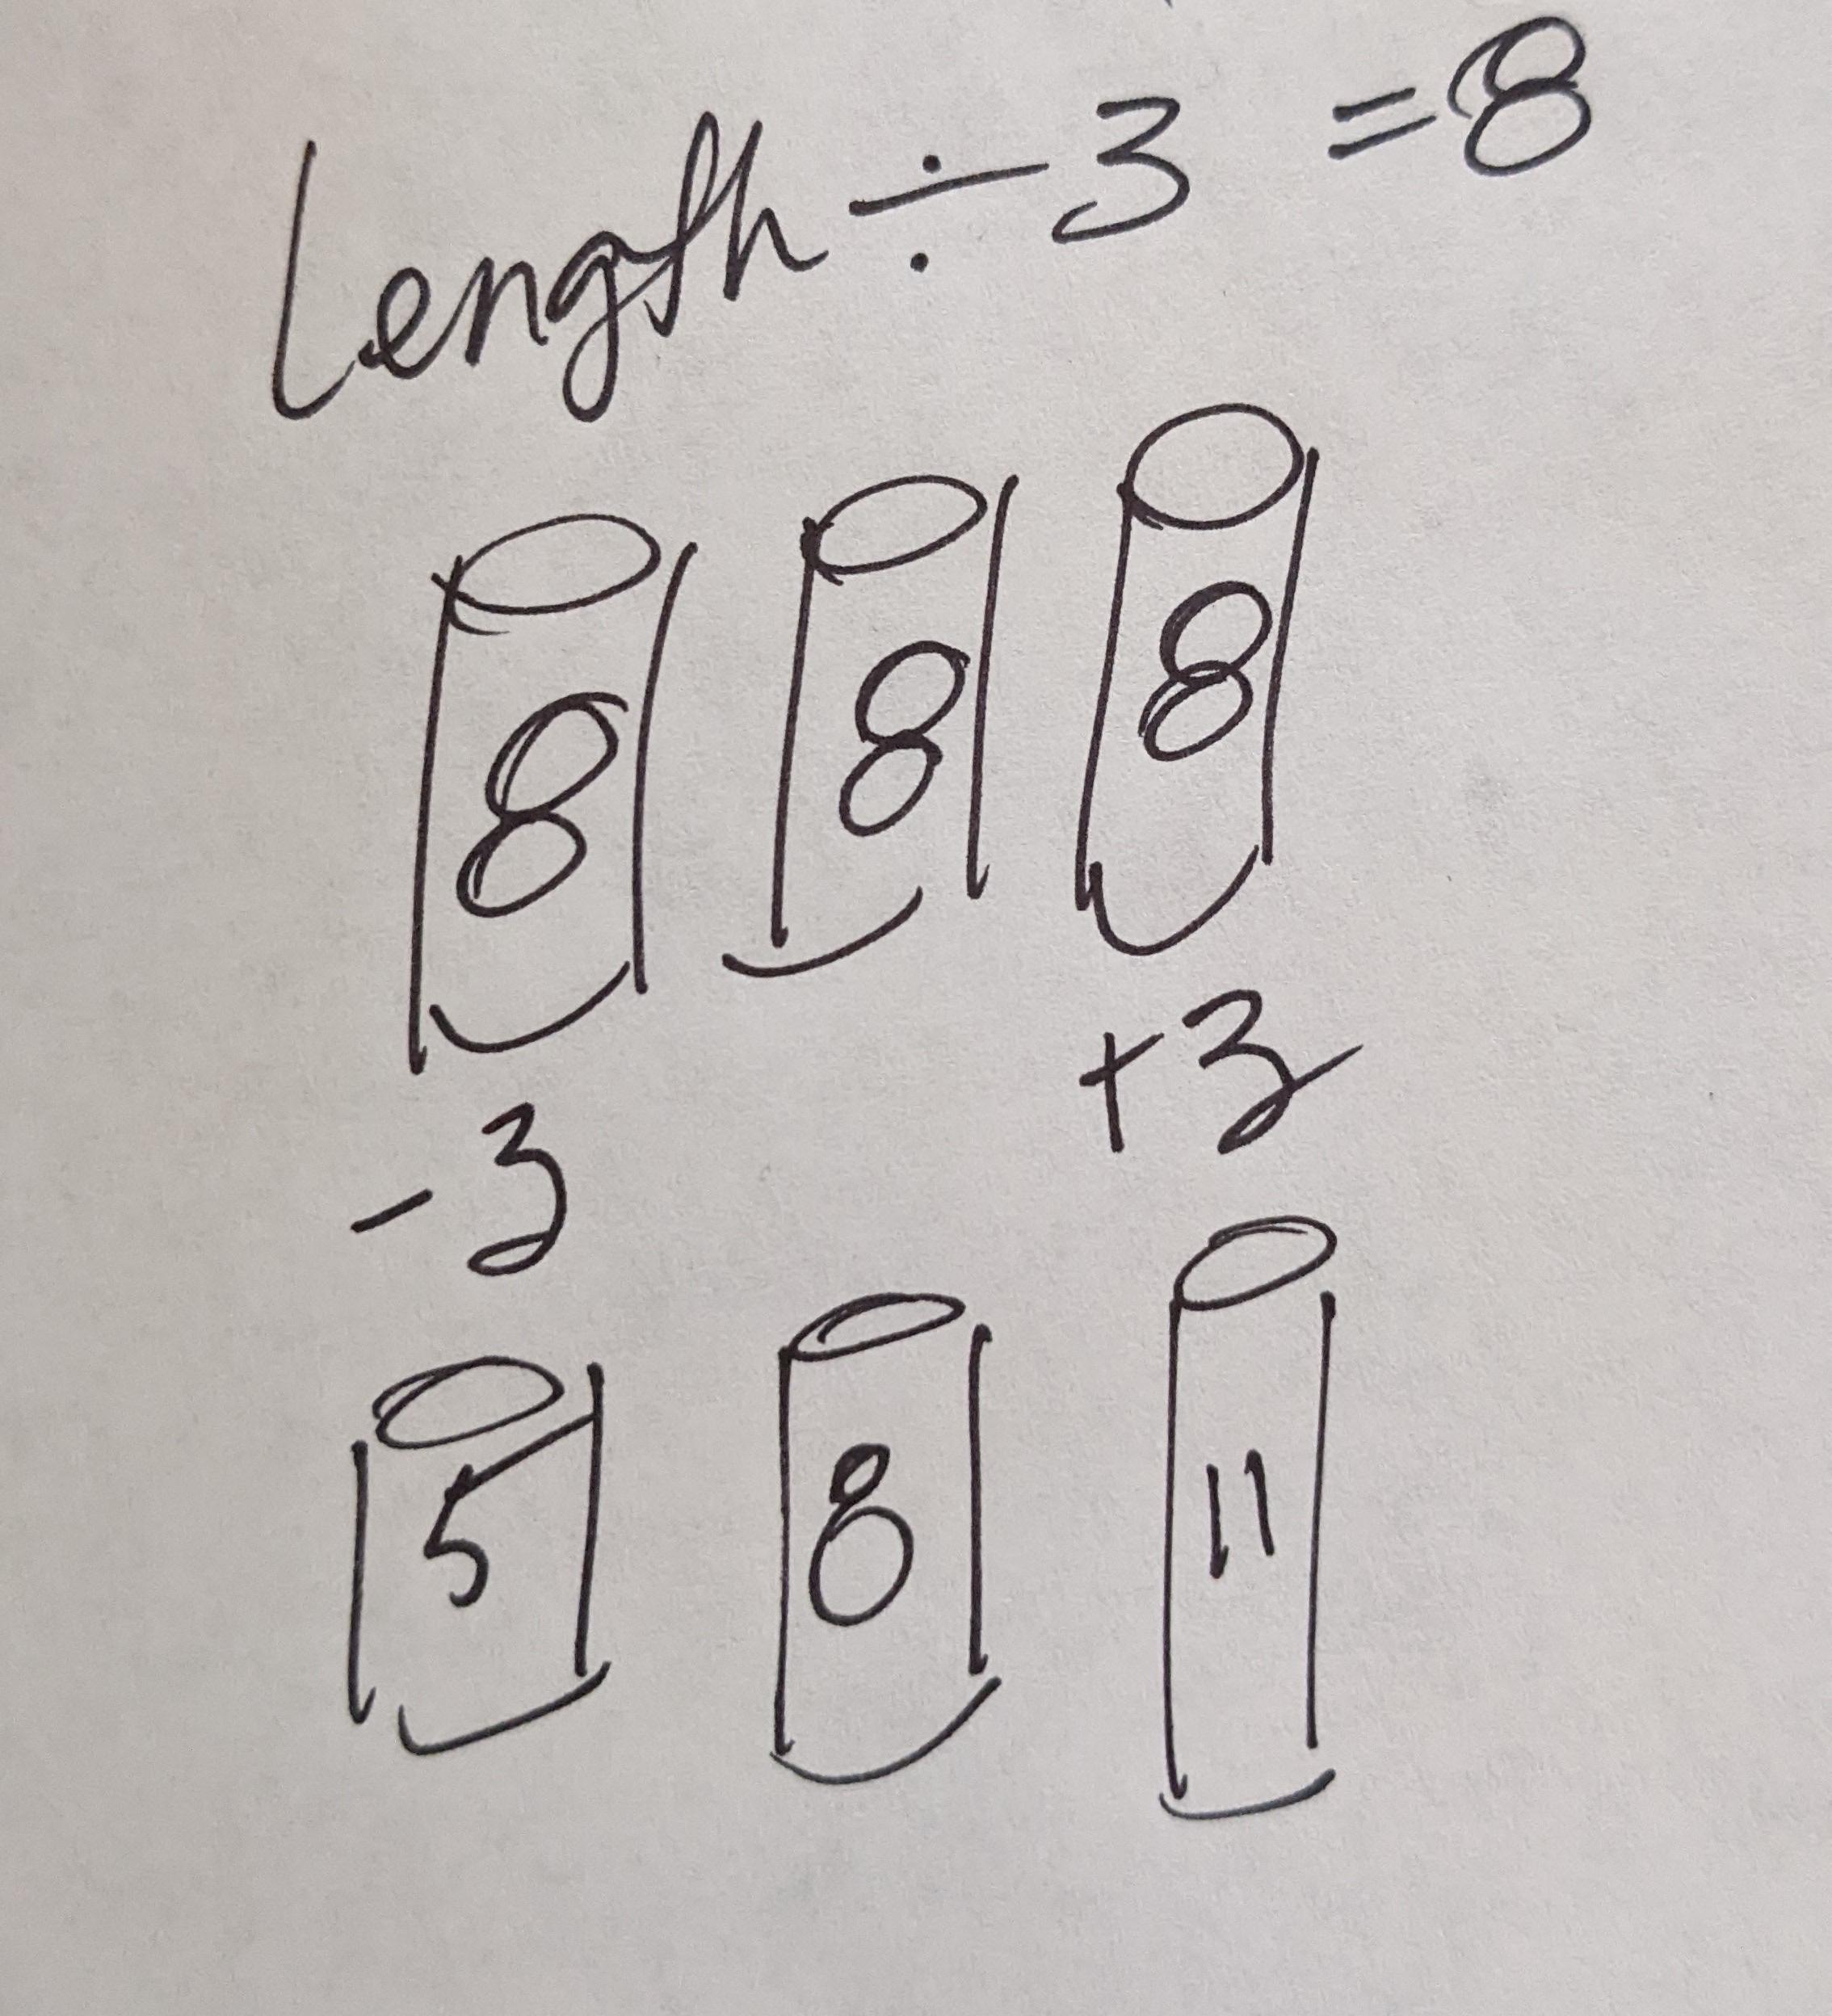 Length ÷ 3 = 8
8 8 8
- 3 + 3
5 8 11